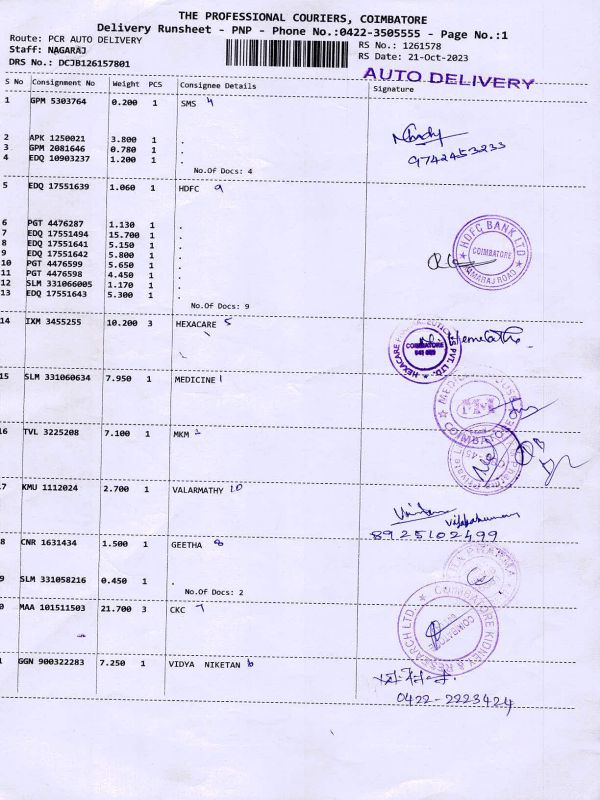 THE PROFESSIONAL COURIERS, COIMBATORE
Delivery Runsheet - PNP - Phone No.:0422-3505555 - Page No.:1
Route: PCR AUTO DELIVERY RS No.: 1261578
Staff: NAGARAJ RS Date: 21-Oct-2023
DRS No.: DCJB126157801
AUTO DELIVERY
S No Consignment No Weight PCS Consignee Details Signature
1 GPM 5303764 0.200 1 SMS 4
2 APK 1250021 3.800 1 .
3 GPM 2081646 0.780 1 .
4 EDQ 10903237 1.200 1 .
9742453233
No.Of Docs: 4
5 EDQ 17551639 1.060 1 HDFC 9
6 PGT 4476287 1.130 1 .
7 EDQ 17551494 15.700 1 .
8 EDQ 17551641 5.150 1 .
9 EDQ 17551642 5.800 1 .
10 PGT 4476599 5.650 1 .
11 PGT 4476598 4.450 1 .
12 SLM 331066005 1.170 1 .
13 EDQ 17551643 5.300 1 .
HDFC BANK LTD
COIMBATORE
KAMARAJ ROAD
No.Of Docs: 9
14 IXM 3455255 10.200 3 HEXACARE 5
COIMBATORE
15 SLM 331060634 7.950 1 MEDICINE 1
COIMBATORE
16 TVL 3225208 7.100 1 MKM 2
17 KMU 1112024 2.700 1 VALARMATHY 10
8925102499
8 CNR 1631434 1.500 1 GEETHA 8
9 SLM 331058216 0.450 1 .
No.Of Docs: 2
0 MAA 101511503 21.700 3 CKC 7
COIMBATORE KIDNEY &
RESEARCH LTD.
COIMBATORE
1 GGN 900322283 7.250 1 VIDYA NIKETAN 6
0422-2223424